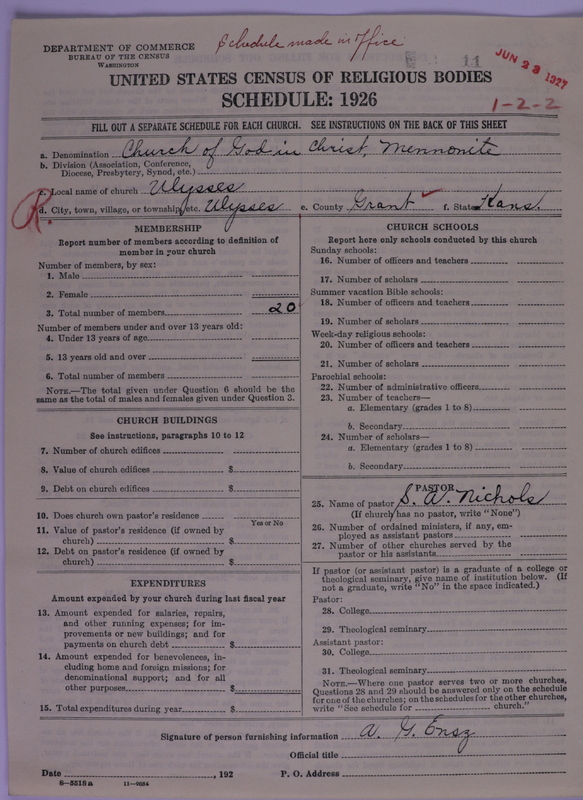 Schedule made in office
DEPARTMENT OF COMMERCE
BUREAU OF THE CENSUS
WASHINGTON
11
JUN 23 1927
UNITED STATES CENSUS OF RELIGIOUS BODIES
SCHEDULE: 1926
1-2-2
FILL OUT A SEPARATE SCHEDULE FOR EACH CHURCH. SEE INSTRUCTIONS ON THE BACK OF THIS SHEET
a. Denomination Church of God in Christ, Mennonite
b. Division (Association, Conference, Diocese, Presbytery, Synod, etc.)
c. Local name of church Ulysses
R. d. City, town, village, or township, etc. Ulysses e. County Grant f. State Kans.
MEMBERSHIP
Report number of members according to definition of
member in your church
Number of members, by sex:
1. Male
2. Female
3. Total number of members 20
Number of members under and over 13 years old:
4. Under 13 years of age
5. 13 years old and over
6. Total number of members
NOTE.—The total given under Question 6 should be the
same as the total of males and females given under Question 3.
CHURCH BUILDINGS
See instructions, paragraphs 10 to 12
7. Number of church edifices
8. Value of church edifices $
9. Debt on church edifices $
10. Does church own pastor's residence
Yes or No
11. Value of pastor's residence (if owned by
church) $
12. Debt on pastor's residence (if owned by
church) $
EXPENDITURES
Amount expended by your church during last fiscal year
13. Amount expended for salaries, repairs,
and other running expenses; for im-
provements or new buildings; and for
payments on church debt $
14. Amount expended for benevolences, in-
cluding home and foreign missions; for
denominational support; and for all
other purposes $
15. Total expenditures during year $
CHURCH SCHOOLS
Report here only schools conducted by this church
Sunday schools:
16. Number of officers and teachers
17. Number of scholars
Summer vacation Bible schools:
18. Number of officers and teachers
19. Number of scholars
Week-day religious schools:
20. Number of officers and teachers
21. Number of scholars
Parochial schools:
22. Number of administrative officers
23. Number of teachers—
a. Elementary (grades 1 to 8)
b. Secondary
24. Number of scholars—
a. Elementary (grades 1 to 8)
b. Secondary
PASTOR
25. Name of pastor S. A. Nichols
(If church has no pastor, write "None")
26. Number of ordained ministers, if any, em-
ployed as assistant pastors
27. Number of other churches served by the
pastor or his assistants
If pastor (or assistant pastor) is a graduate of a college or
theological seminary, give name of institution below. (If
not a graduate, write "No" in the space indicated.)
Pastor:
28. College
29. Theological seminary
Assistant pastor:
30. College
31. Theological seminary
NOTE.—Where one pastor serves two or more churches,
Questions 28 and 29 should be answered only on the schedule
for one of the churches; on the schedules for the other churches,
write "See schedule for church."
Signature of person furnishing information A. G. Ensz
Official title
Date , 192 P. O. Address
6—5518a 11—9684